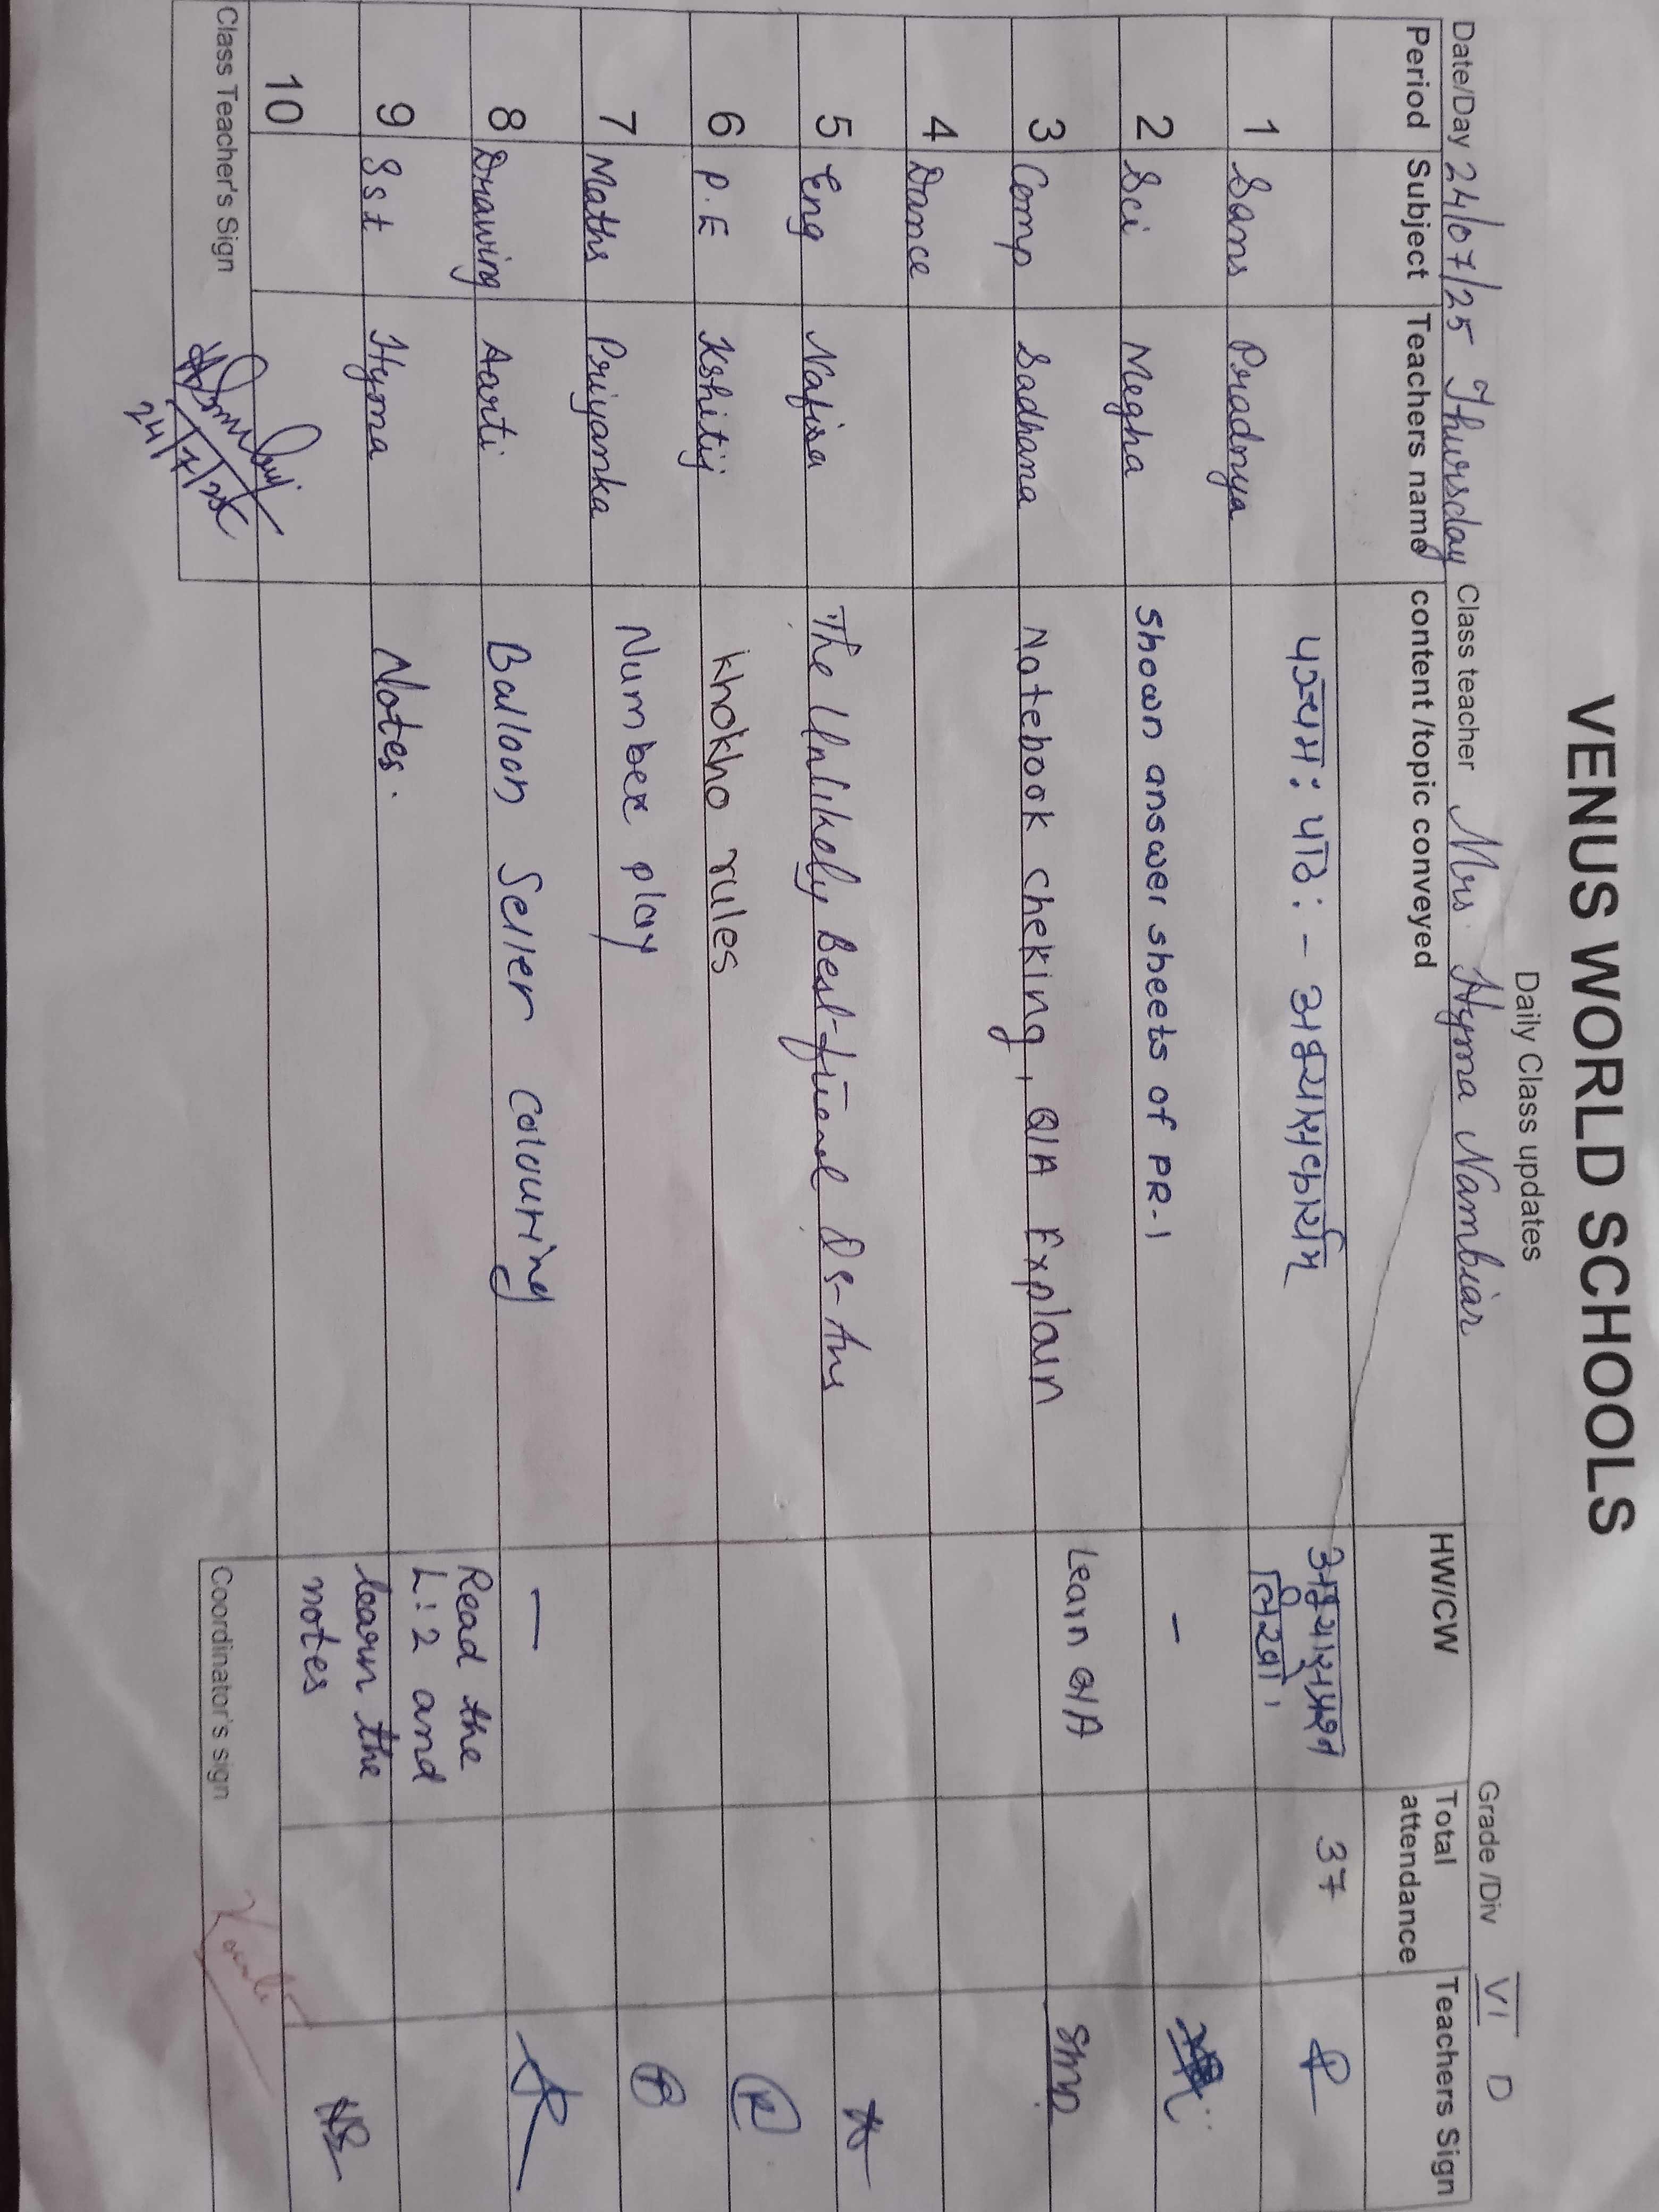 VENUS WORLD SCHOOLS
Daily Class updates
Grade /Div VI D
Date/Day 24/07/25 Thursday Class teacher Mrs. Hyma Nambiar
Period Subject Teachers name content /topic conveyed HW/CW Total attendance Teachers Sign
1 Sans Pradnya पञ्चम: पाठ: - अभ्यासकार्यम् अभ्यासप्रश्न 37
लिखो।
2 Sci Megha Shown answer sheets of PR-1 -
3 Comp Sadhana Notebook cheking, Q/A Explain Learn Q/A
4 Dance
5 Eng Nafisa The Unlikely Best-friend Qs-Ans
6 P.E Kshitij khokho rules
7 Maths Priyanka Number play
8 Drawing Aarti Balloon Seller colouring -
9 Sst Hyma Notes. Read the
L:2 and
learn the
notes
10
Class Teacher's Sign 24/7/25 Coordinator's sign